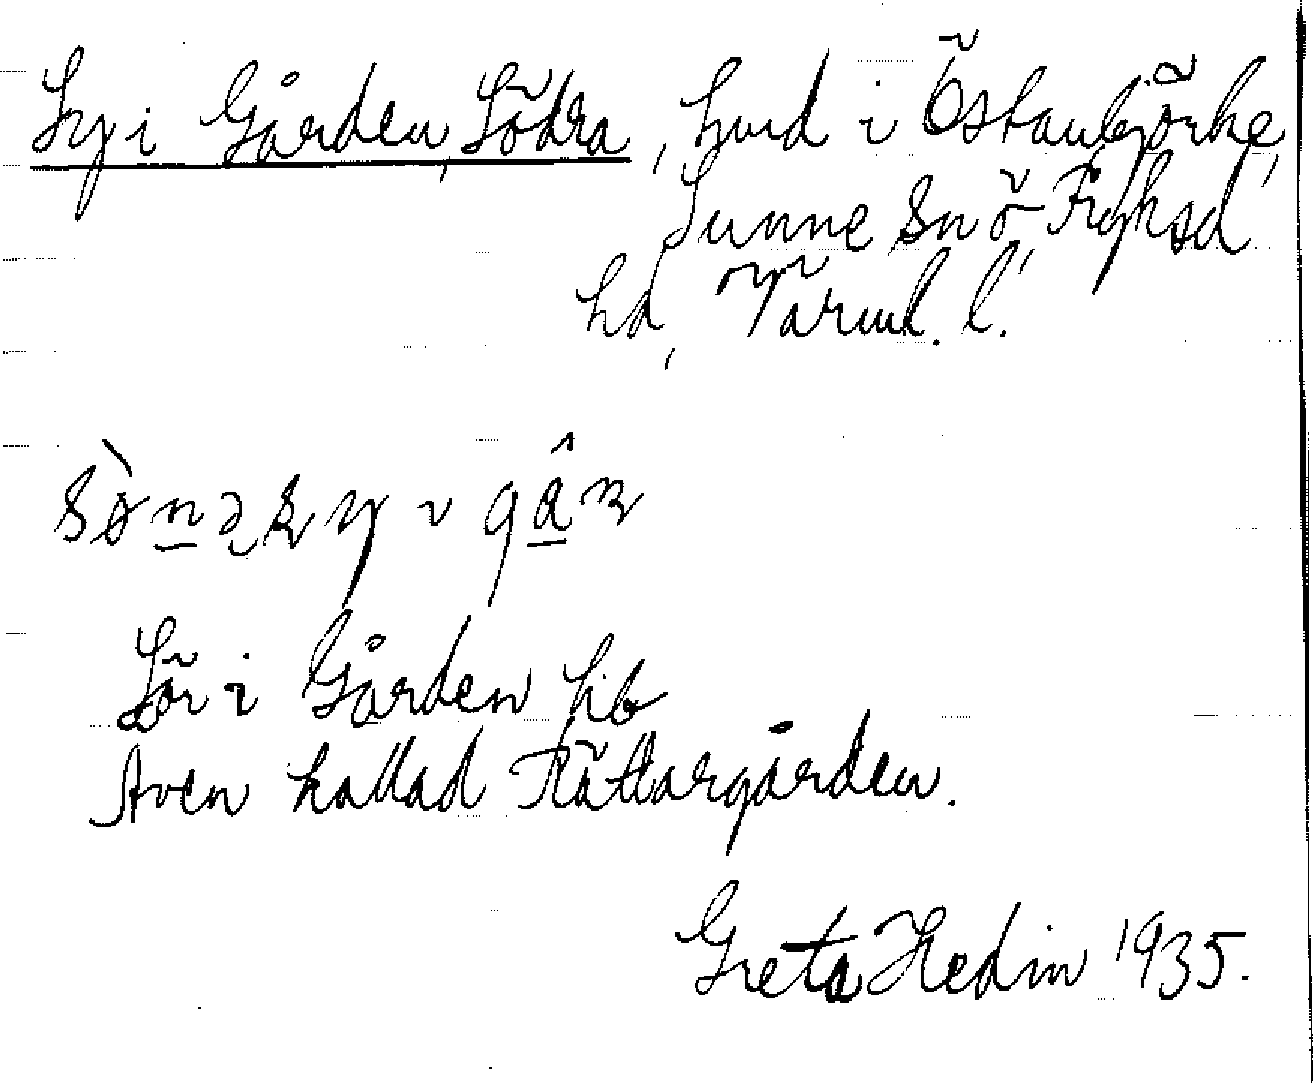 Sy i Gården, Södra, hmd i Östanbjörke,
Sunne sn ö Fryksd
hd, Värml. l.
Sör i Gården hb
Även kallad Rättargården.
Greta Hedin 1935.